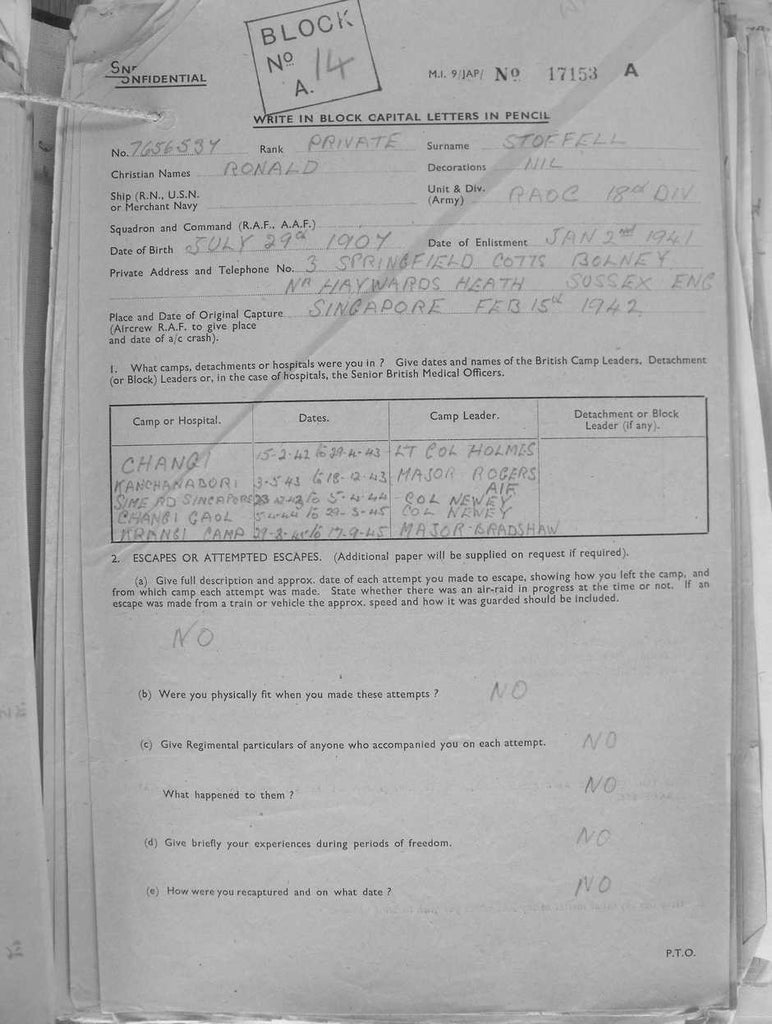 BLOCK
Nº 14
A.
CONFIDENTIAL
M.I. 9/JAP/ Nº 17153 A
WRITE IN BLOCK CAPITAL LETTERS IN PENCIL
No. 7656534 Rank PRIVATE Surname STOFFELL
Christian Names RONALD Decorations NIL
Ship (R.N., U.S.N. or Merchant Navy Unit & Div. (Army) RAOC 18th DIV
Squadron and Command (R.A.F., A.A.F.)
Date of Birth JULY 29th 1907 Date of Enlistment JAN 2nd 1941
Private Address and Telephone No. 3 SPRINGFIELD COTTS BOLNEY
NR HAYWARDS HEATH SUSSEX ENG
Place and Date of Original Capture SINGAPORE FEB 15th 1942
(Aircrew R.A.F. to give place
and date of a/c crash).
1. What camps, detachments or hospitals were you in ? Give dates and names of the British Camp Leaders, Detachment
(or Block) Leaders or, in the case of hospitals, the Senior British Medical Officers.
Camp or Hospital. Dates. Camp Leader. Detachment or Block Leader (if any).
CHANGI 15-2-42 to 29-4-43 LT COL HOLMES
KANCHANABORI 3-5-43 to 18-12-43 MAJOR ROGERS AIF
SIME RD SINGAPORE 23-12-43 to 5-4-44 COL NEWEY
CHANGI GAOL 5-4-44 to 29-3-45 COL NEWEY
KRANGI CAMP 29-3-45 to 17-9-45 MAJOR BRADSHAW
2. ESCAPES OR ATTEMPTED ESCAPES. (Additional paper will be supplied on request if required).
(a) Give full description and approx. date of each attempt you made to escape, showing how you left the camp, and
from which camp each attempt was made. State whether there was an air-raid in progress at the time or not. If an
escape was made from a train or vehicle the approx. speed and how it was guarded should be included.
NO
(b) Were you physically fit when you made these attempts ? NO
(c) Give Regimental particulars of anyone who accompanied you on each attempt. NO
What happened to them ? NO
(d) Give briefly your experiences during periods of freedom. NO
(e) How were you recaptured and on what date ? NO
P.T.O.